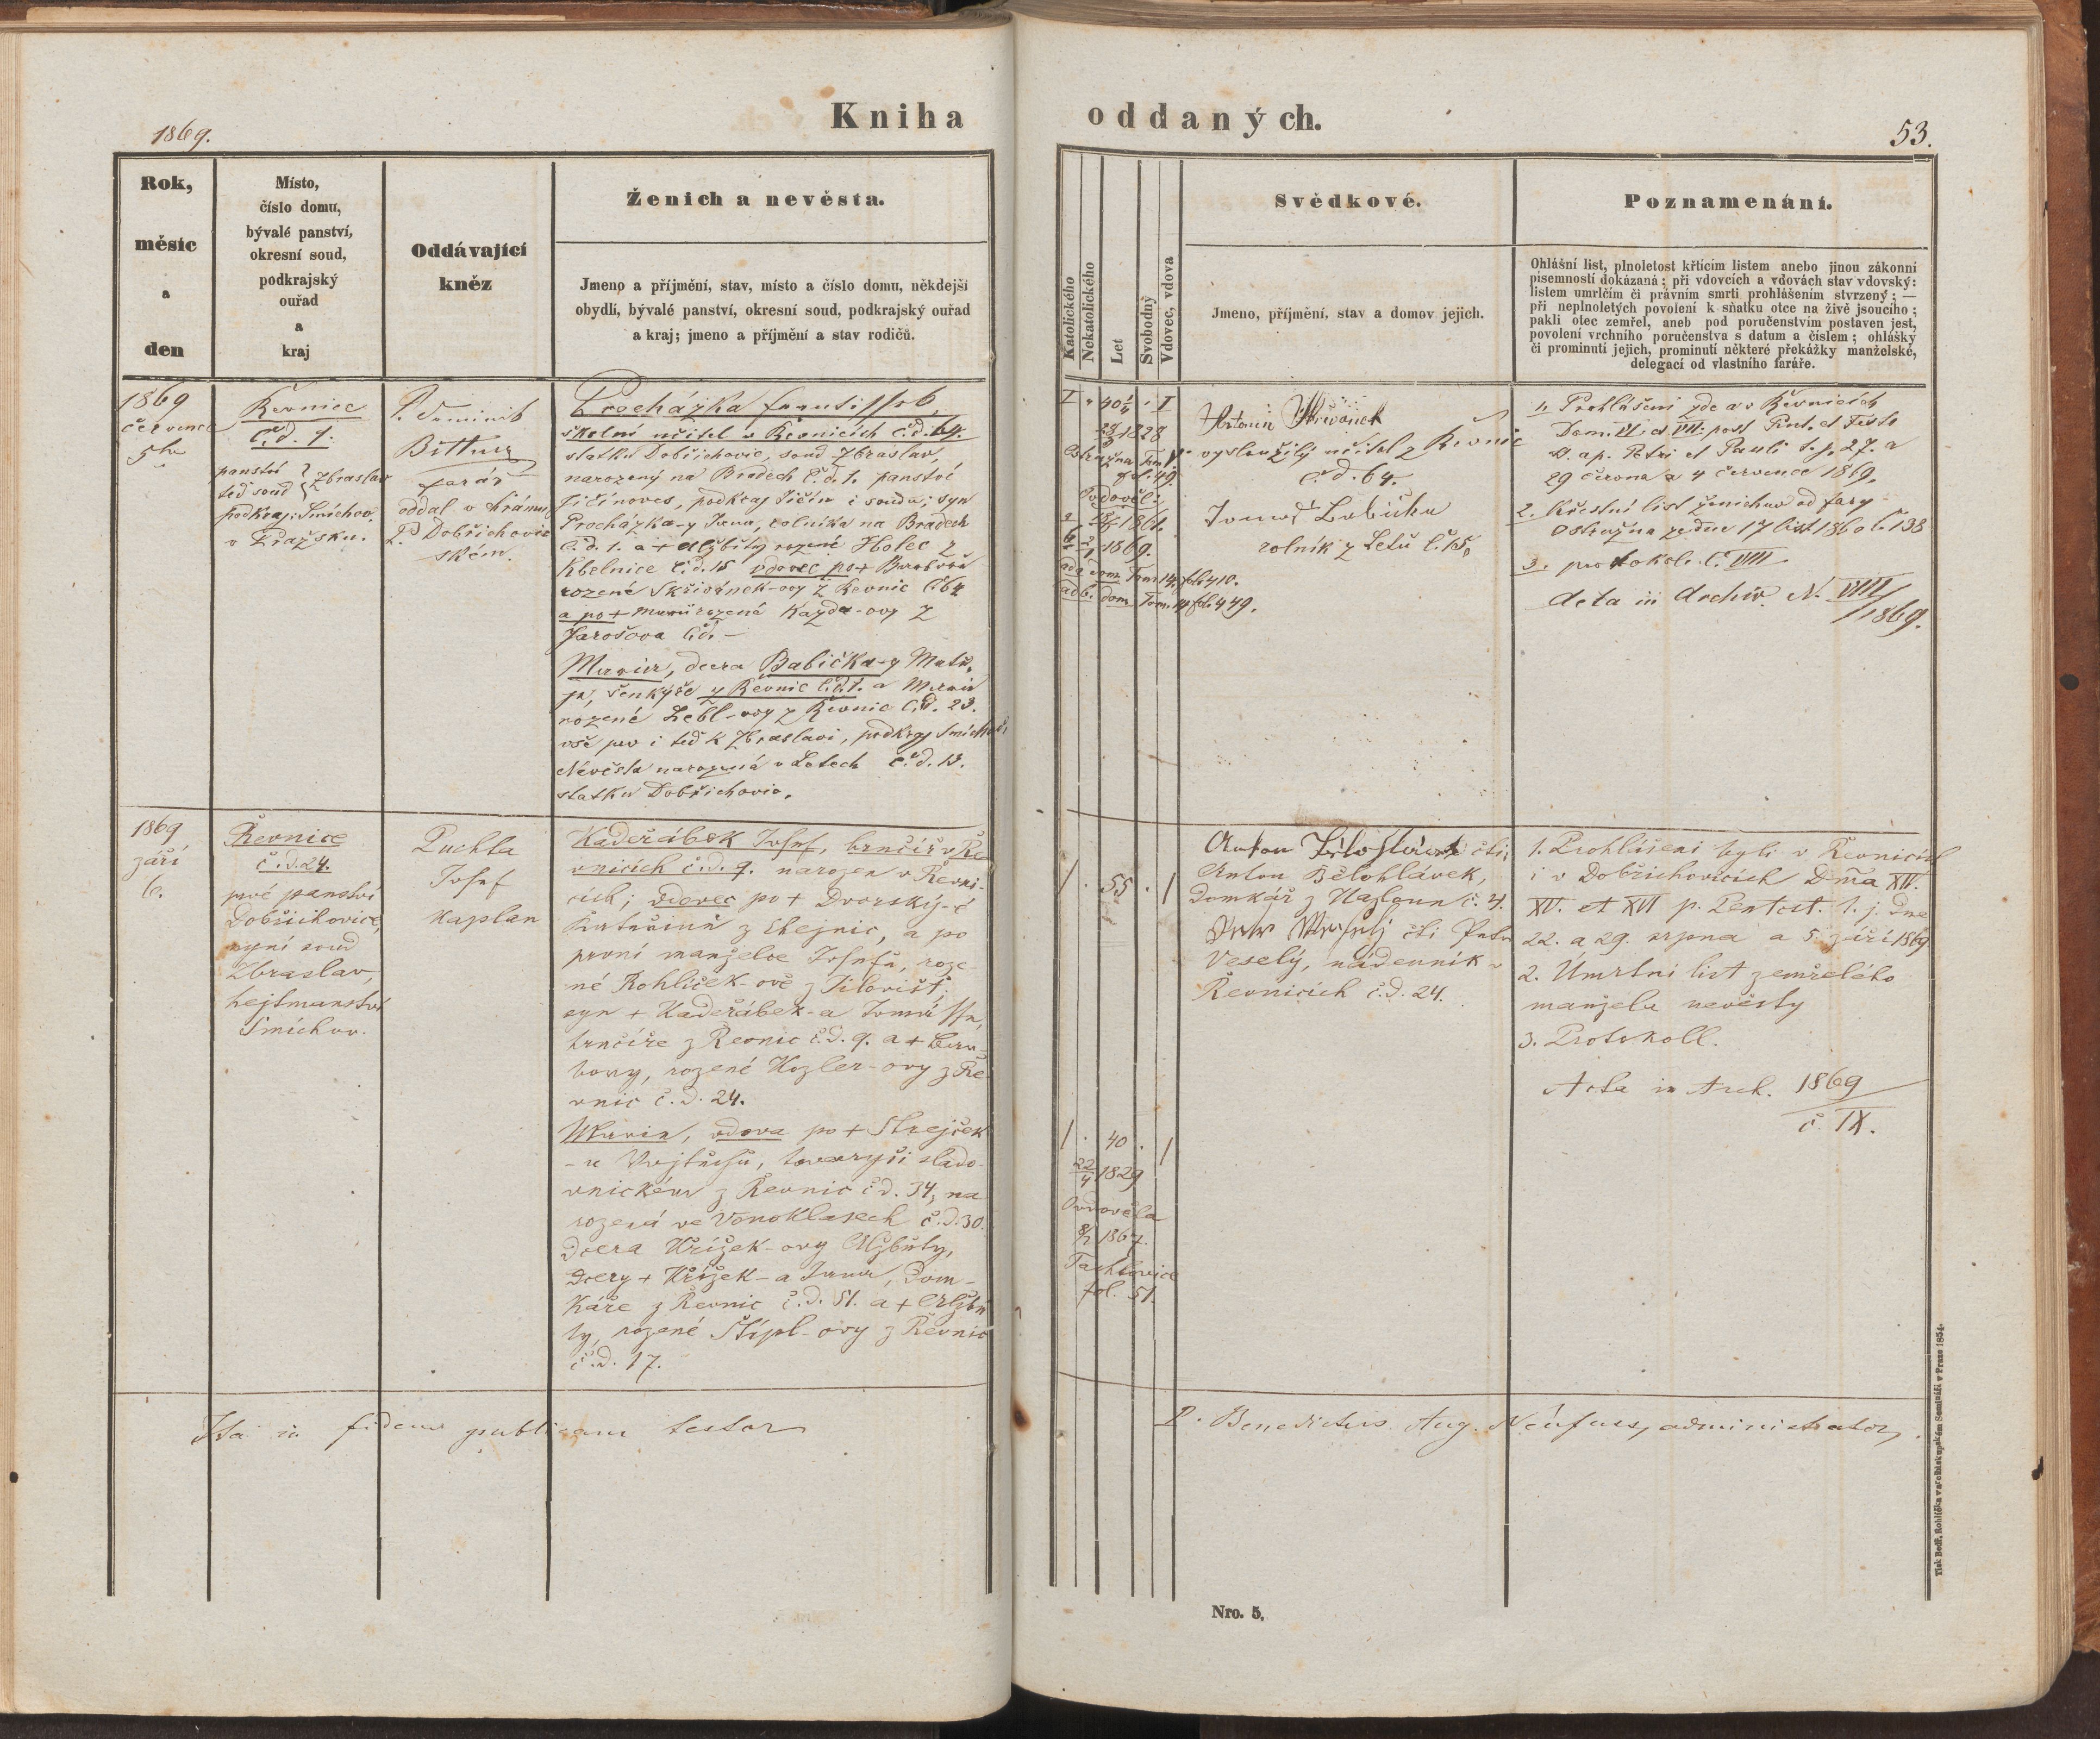 1869.
Kniha
oddaných.
53.
Rok,
měsíc
a
den
Místo,
číslo domu,
bývalé panství,
okresní soud,
podkrajský
ouřad
a
kraj
Oddávající
kněz
Ženich a nevěsta.
Jmeno a příjmění, stav, místo a číslo domu, někdejší
obydlí, bývalé panství, okresní soud, podkrajský ouřad
a kraj; jmeno a příjmění a stav rodičů.
Katolického
Nekatolického
Let
Svobodný
Vdovec, vdova
Svědkové.
Jmeno, příjmění, stav a domov jejich.
Poznamenání.
Ohlášní list, plnoletost křtícím listem anebo jinou zákonní
písemností dokázaná; při vdovcích a vdovách stav vdovský:
listem umrlčím či právním smrti prohlášením stvrzený; —
při neplnoletých povolení k sňatku otce na živě jsoucího;
pakli otec zemřel, aneb pod poručenstvím postaven jest,
povolení vrchního poručenstva s datum a číslem; ohlášky
či prominutí jejich, prominutí některé překážky manželské,
delegací od vlastního faráře.
1869
července
5ho
Řevnice
č.d. 1.
panství
teď soud } Zbraslav
podkraj: Smíchov.
v Pražsku.
P. Dominik
Bittner
farář
oddal v chrámu
P. Dobřichovic
ském.
Procházka
školní učitel v Řevnicích č.d. 64.
statku Dobřichovic, soud Zbraslav,
narozený na Bradech č.d. 1. panství
Jičínoves, podkraj Jičín i soudu; syn
Procházka-y Jana, rolníka na Bradech
č.d. 1. a + Alžběty rozené Holec z
Kbelnice č.d. 15 vdovec po + Barboře
rozené Skřivánek-ovy z Řevnic č. 64
a po + Marii rozená Kazda-ovy z
Jarošova č.d. –
Marie, dcera Babička-y Matě-
je, šenkýře z Řevnic č.d. 1. a Marie
rozené Lebl-ovy z Řevnic č.d. 23.
vše prv i teď k Zbraslavi, podkraj Smíchov
Nevěsta narozená v Letech č.d. 13.
statku Dobřichovic.
I 40 1/4 I
1828
1861.
1869.
ad a. dom. Tom 14. fol. 410.
ad b. dom. Tom. fol. 449.
Antonín Skřivánek
vysloužilý učitel z Řevnic
č.d. 64.
Tomáš
rolník z Letů č. 15.
1. Prohlášení zde a v Řevnicích
Dom. VI. et VII: post Pent. et Festo
S. ap. Petri et Pauli t.j. 27. a
29 června a 4 července 1869.
2. Křestní list ženichův od fary
Ostružna ze dne 17 list. 1860 č. 138
3. protokol. č. VIII
Acta in Archiv. N. VIII
1869.
1869
září
6.
Řevnice
č.d. 24.
prvé panství
Dobřichovice,
nyní soud
Zbraslav,
hejtmanství
Smíchov.
Puchta
Josef
kaplan
Kadeřábek Josef, hrnčíř v Ře-
vnicích č.d. 9. narozen v Řevni-
cích; vdovec po + Dvorský-é
Kateřině z Chejnic, a po
první manželce Josefě, roze-
né Rohlíček-ově z Jíloviště,
syn + Kadeřábek-a Tomáše,
hrnčíře z Řevnic č.d. 9. a + Bar-
bory, rozené Kozler-ovy z Ře-
vnic č.d. 24.
Marie, vdova po + Strejček
-u Vojtěchu, tovaryši slado-
vnickém z Řevnic č.d. 34, na-
rozená ve Vonoklasech č.d. 30.
dcera Křížek-ovy Alžběty,
dcery + Křížek-a Jana, dom-
káře z Řevnic č.d. 51. a + Alžbě-
ty, rozené Štípl-ovy z Řevnic
č.d. 17.
1 . 55 . 1
1 . 40 . 1
22/4 1829
Ovdověla
1867.
Tachlovice
fol. 51.
Anton čti:
Anton Bělohlávek,
domkář z Hazloun č. 4.
čti Petr
Veselý, nádenník v
Řevnicích č.d. 24.
1. Prohlášeni byli v Řevnicích
i v Dobřichovicích Dnīa XIV.
XV. et XVI p. Pentect. t.j. dne
22. a 29. srpna a 5. září 1869
2. Úmrtní list zemřelého
manžela nevěsty
3. Protokoll.
Acta in Arch. 1869
č. IX.
Ita in fidem publicam testor
P. Benedictus Aug. Neüfuss, administrator.
Nro. 5.
Tisk Bedř. Rohlíčka v arcibiskupském Semináři v Praze 1854.